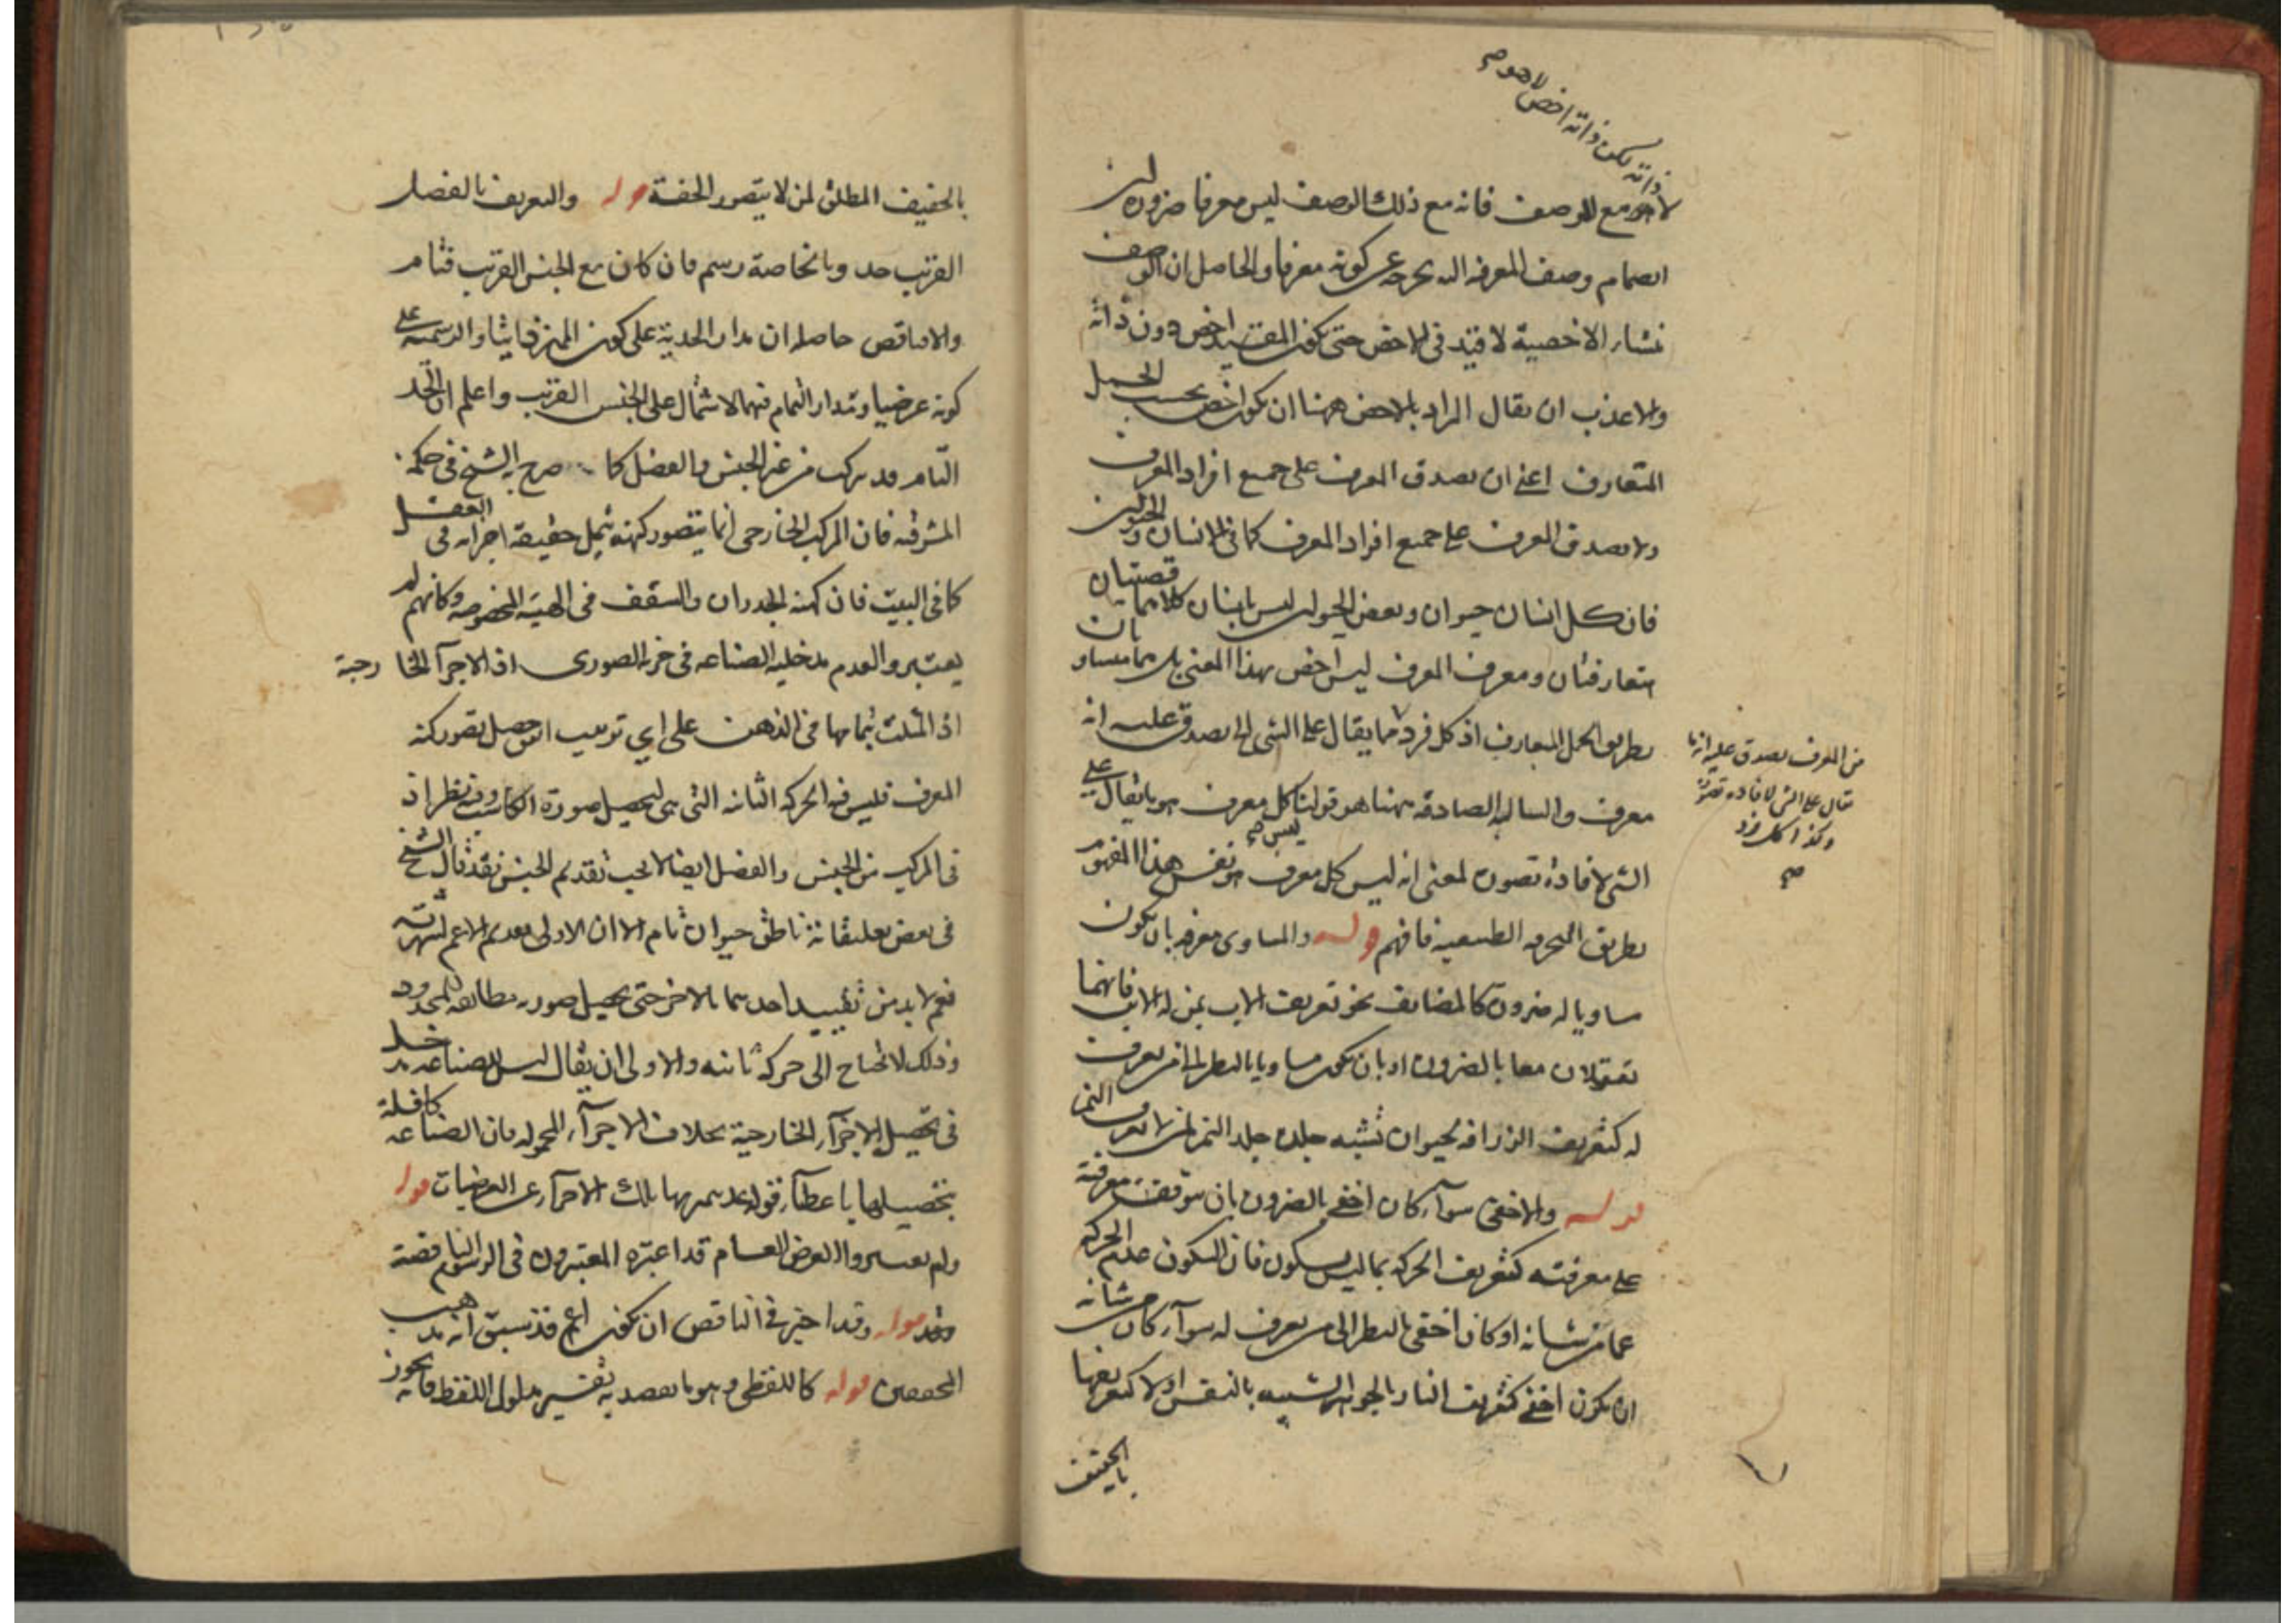 ذاته يكون ذاته اخص لا هو صح
لا هو مع الوصف فانه مع ذلك الوصف ليس معرفا ضرورة ان
انضمام وصف المعرفية اليه يخرجه عن كونه معرفا والحاصل ان الوصف
منشاء الاخصية لا قيد في الاخص حتى يكون المقيد اخص دون ذاته
والاعذب ان يقال المراد بالاخص ههنا ان يكون اخص بحسب الحمل
المتعارف اعني ان يصدق المعرف على جميع افراد المعرف
ولا يصدق المعرف على جميع افراد المعرف كما في الانسان والحيوان
فان كل انسان حيوان وبعض الحيوان ليس بانسان كلاهما قضيتان
متعارفتان ومعرف المعرف ليس اخص بهذا المعنى بل هما متساويان
بطريق الحمل المتعارف اذ كل فرد مما يقال على الشي الخ يصدق عليه انه
من المعرف يصدق عليه انه ما
يقال على الشي لافادة تصوره
وكذا كل فرد
صح
معرف والسالبة الصادقة ههنا هو قولنا كل معرف هو ما يقال على
ليس صح
الشي لافادة تصوره لمعنى انه ليس كل معرف هو نفس هذا المفهوم
بطريق الطبيعية فافهم قوله والمساوي معرفة بان يكون
مساويا له ضرورة كالمضايف نحو تعريف الاب بمن له الابن فانهما
تعقلان معا بالضرورة او بان يكون مساويا بالنظر الى من يعرف
له كتعريف الزرافة بحيوان تشبه جلده جلد النمر لمن لا يعرف النمر
قوله والاخفى سواء كان اخفى بالضرورة بان يتوقف معرفته
على معرفته كتعريف الحركة بما ليس بسكون فان السكون عدم الحركة
عما من شانه او كان اخفى بالنظر الى من يعرف له سواء كان من شانه
ان يكون اخفى كتعريف النار بالجوهر الشبيه بالنفس او لا كتعريفها
بالخفيف
بالخفيف المطلق لمن لا يتصور الخفة قوله والتعريف بالفصل
القريب حد وبالخاصة رسم فان كان مع الجنس القريب فتام
والا فناقص حاصله ان مدار الحدية على كون المميز ذاتيا والرسمية على
كونه عرضيا ومدار التمام فيهما الاشتمال على الجنس القريب واعلم ان الحد
التام قد يركب من غير الجنس والفصل كما صرح به الشيخ في حكمة
المشرقية فان المركب الخارجي انما يتصور كنهه بتمثل حقيقة اجزائه في العقل
كما في البيت فان كنه الجدران والسقف في الهيئة المخصوصة وكانهم لم
يعتبروا لعدم مدخلية الصناعة في جزئه الصوري اذ الاجزاء الخارجية
اذا تمثلت بتمامها في الذهن على اي ترتيب اتفق حصل تصور كنه
المعرف فليس فيه الحركة الثانية التي هي لتحصيل صورة الكاسب وفيه نظر اذ
في المركب من الجنس والفصل ايضا لا يجب تقديم الجنس فقد قال الشيخ
في بعض تعليقاته ناطق حيوان تام الا ان الاولى تقديم الاعم لشهرته
نعم لا بد من تقييد احدهما بالاخر حتى يحصل صورة مطابقة للمحدود
وذلك لا يحتاج الى حركة ثانية والاولى ان يقال ليس للصناعة مدخل
في تحصيل الاجزاء الخارجية بخلاف الاجزاء المحمولة فان الصناعة كافلة
بتحصيلها باعطاء قواعد يميز بها تلك الاجزاء عن العرضيات قوله
ولم يعتبروا العرض العام قد اعتبره المعتبرون في الرسوم الناقصة
قوله وقد اجيز في الناقص ان يكون اعم قد سبق انه مذهب
المحققين قوله كاللفظي وهو ما يقصد به تفسير مدلول اللفظ فانه يجوز